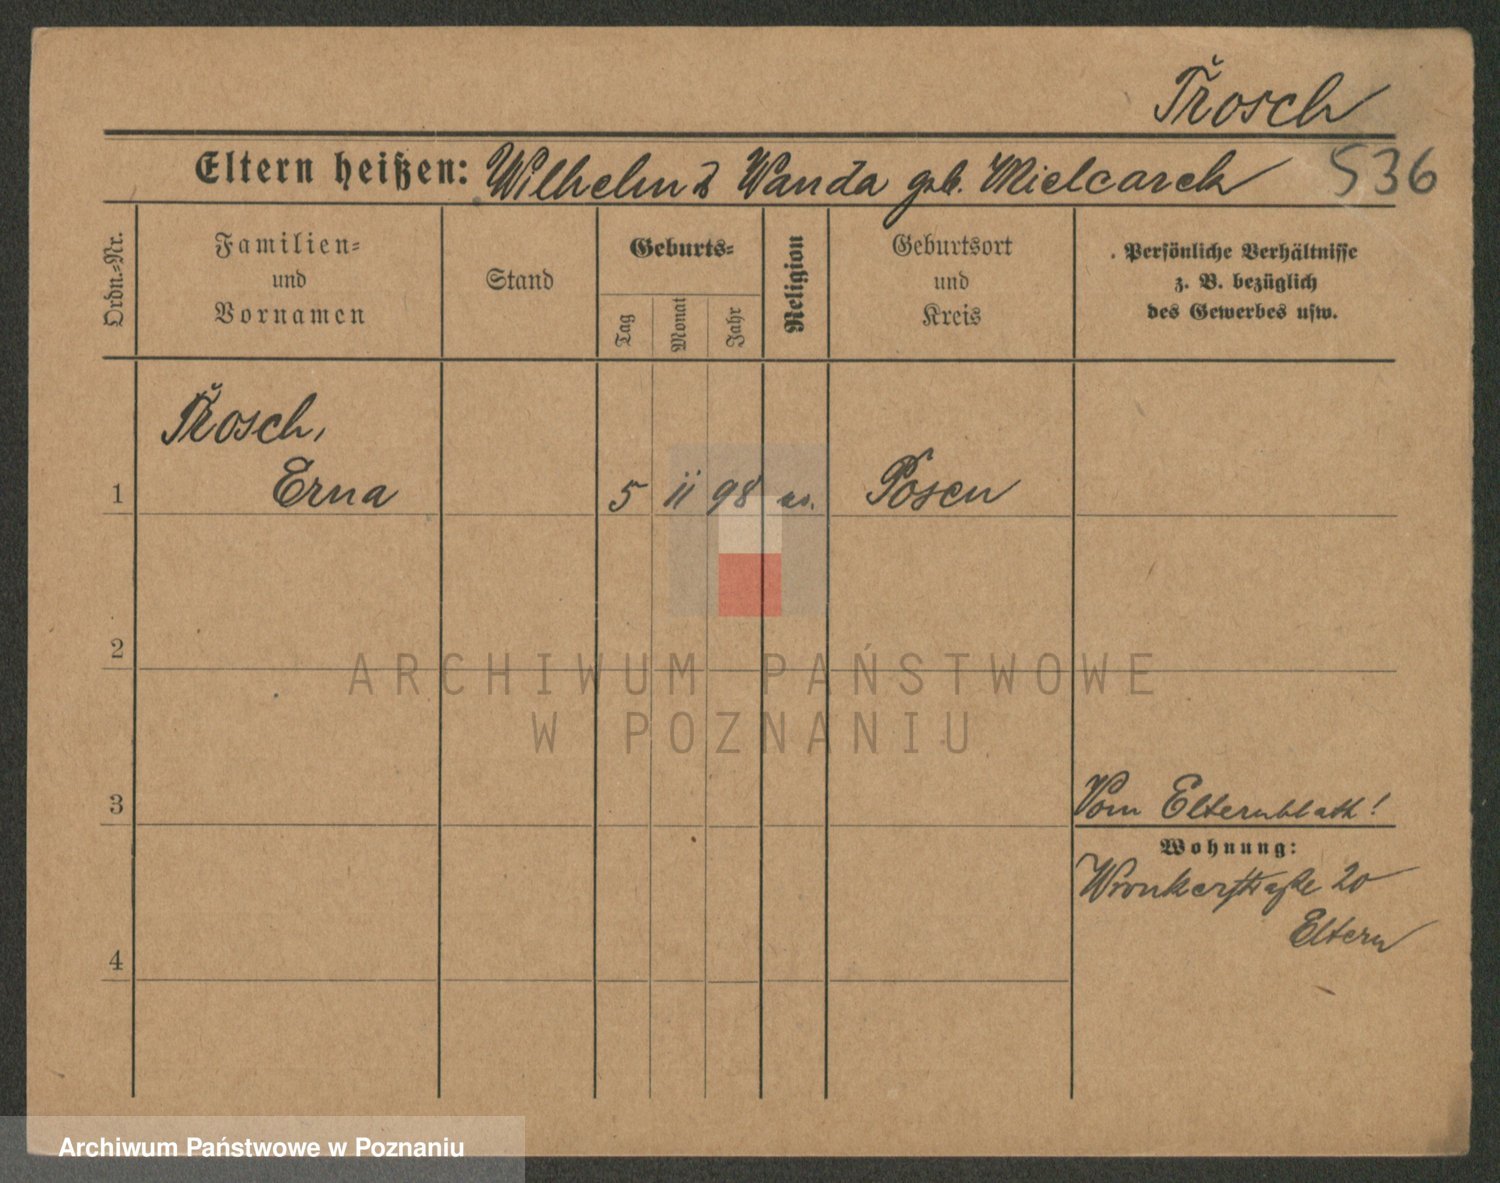 Trosch
Eltern heißen: Wilhelm & Wanda geb. Mielcarek 536
Ordn.-Nr.
Familien-
und
Vornamen
Stand
Geburts-
Tag
Monat
Jahr
Religion
Geburtsort
und
Kreis
Persönliche Verhältnisse
z. B. bezüglich
des Gewerbes usw.
Trosch,
1 Erna 5 11 98 Posen
2
3
Vom Elternblatt!
Wohnung:
Wronkerstraße 20
Eltern
4
ARCHIWUM PAŃSTWOWE
W POZNANIU
Archiwum Państwowe w Poznaniu